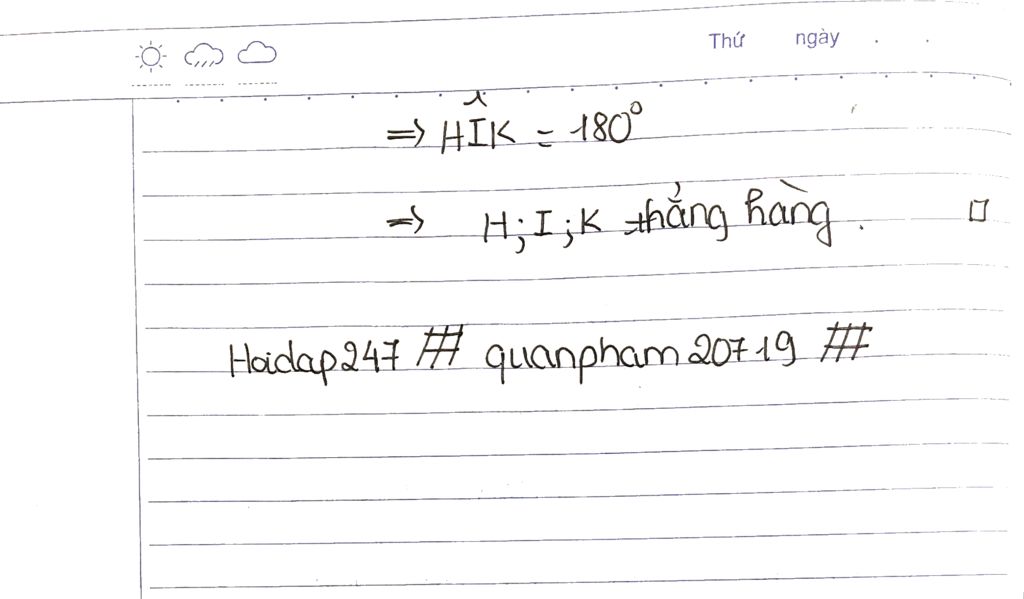 Thứ ngày . .
⇒ HÎK = 180°
⇒ H; I; K thẳng hàng. □
Hoidap247 ### quanpham20719 ###